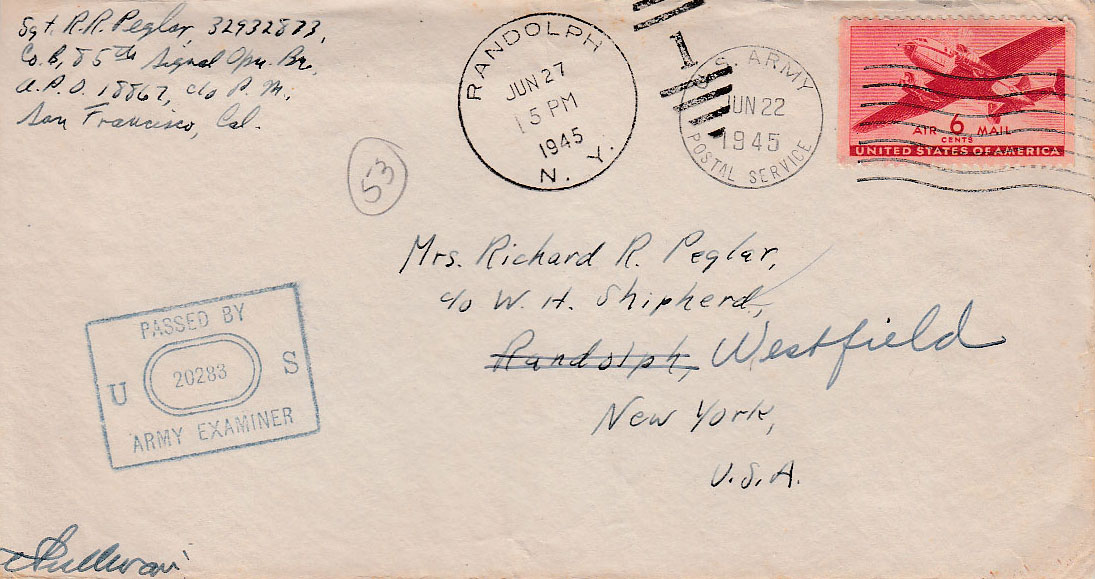 Sgt. R.R. Peglar, 32932873,
Co. B, 85th Signal Opn. Bn,
A.P.O. 18867, c/o P.M.,
San Francisco, Cal.
RANDOLPH
JUN 27
5 PM
1945
N. Y.
1
U.S. ARMY
JUN 22
1945
POSTAL SERVICE
AIR 6 MAIL
CENTS
UNITED STATES OF AMERICA
53
Mrs. Richard R. Peglar,
c/o W. H. Shipherd,
Randolph, Westfield
New York,
U.S.A.
PASSED BY
U 20283 S
ARMY EXAMINER